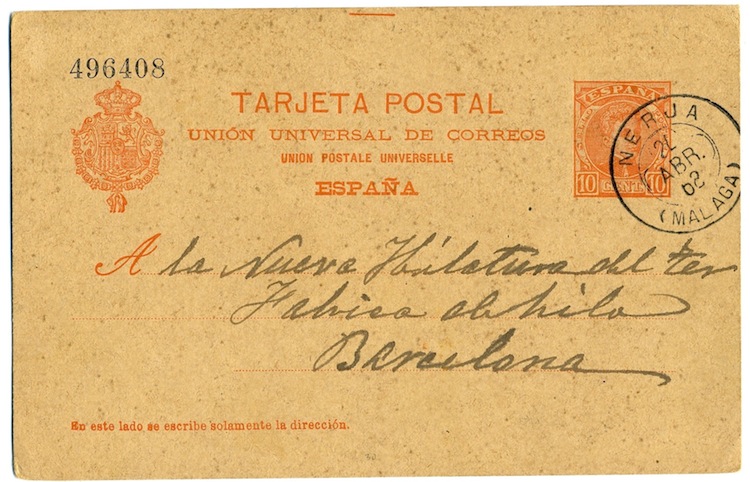 496408
TARJETA POSTAL
UNIÓN UNIVERSAL DE CORREOS
UNION POSTALE UNIVERSELLE
ESPAÑA
ESPAÑA
10 CENT 10
NERJA
ABR.
02
(MALAGA)
A la Nueva Hilatura del Ter
Fabrica de hilo
Barcelona
En este lado se escribe solamente la dirección.